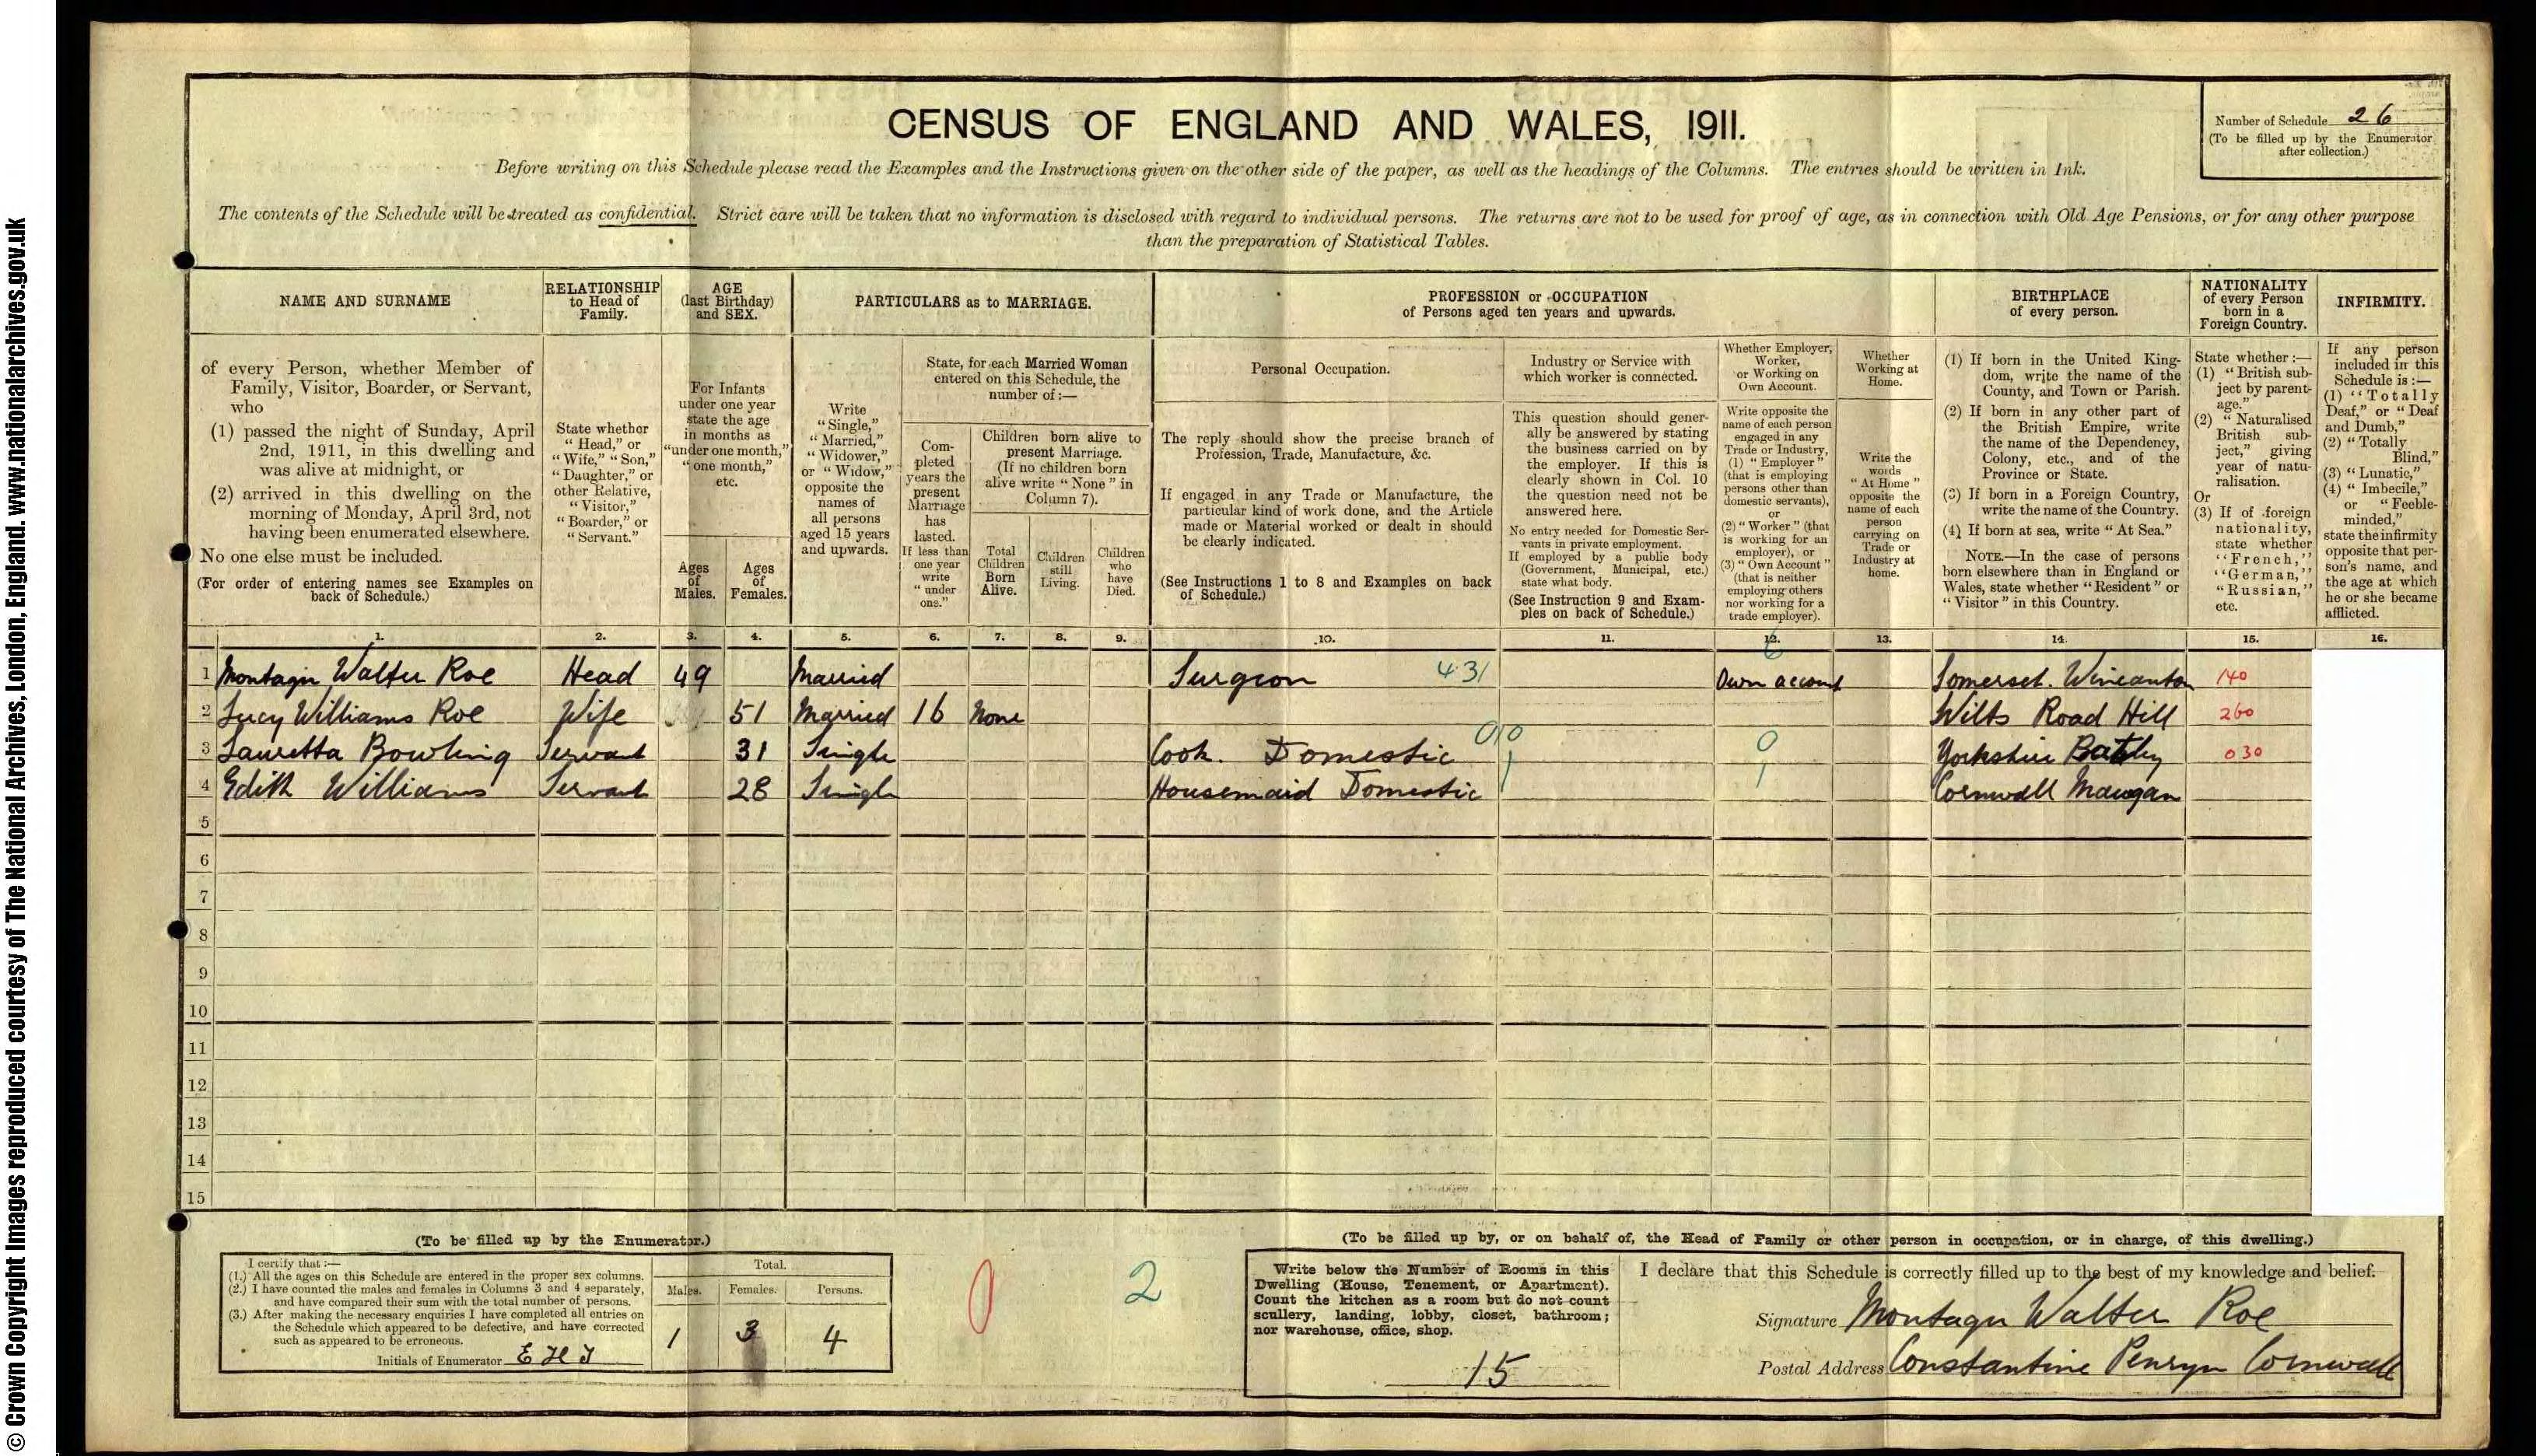 © Crown Copyright Images reproduced courtesy of The National Archives, London, England. www.nationalarchives.gov.uk
CENSUS OF ENGLAND AND WALES, 1911.
Number of Schedule 26
(To be filled up by the Enumerator after collection.)
Before writing on this Schedule please read the Examples and the Instructions given on the other side of the paper, as well as the headings of the Columns. The entries should be written in Ink.
The contents of the Schedule will be treated as confidential. Strict care will be taken that no information is disclosed with regard to individual persons. The returns are not to be used for proof of age, as in connection with Old Age Pensions, or for any other purpose
than the preparation of Statistical Tables.
NAME AND SURNAME
RELATIONSHIP to Head of Family.
AGE (last Birthday) and SEX.
PARTICULARS as to MARRIAGE.
PROFESSION or OCCUPATION of Persons aged ten years and upwards.
BIRTHPLACE of every person.
NATIONALITY of every Person born in a Foreign Country.
INFIRMITY.
of every Person, whether Member of Family, Visitor, Boarder, or Servant, who
(1) passed the night of Sunday, April 2nd, 1911, in this dwelling and was alive at midnight, or
(2) arrived in this dwelling on the morning of Monday, April 3rd, not having been enumerated elsewhere.
No one else must be included.
(For order of entering names see Examples on back of Schedule.)
State whether "Head," or "Wife," "Son," "Daughter," or other Relative, "Visitor," "Boarder," or "Servant."
For Infants under one year state the age in months as "under one month," "one month," etc.
Ages of Males.
Ages of Females.
Write "Single," "Married," "Widower," or "Widow," opposite the names of all persons aged 15 years and upwards.
State, for each Married Woman entered on this Schedule, the number of :—
Completed years the present Marriage has lasted. If less than one year write "under one."
Children born alive to present Marriage. (If no children born alive write "None" in Column 7).
Total Children Born Alive.
Children still Living.
Children who have Died.
Personal Occupation.
The reply should show the precise branch of Profession, Trade, Manufacture, &c.
If engaged in any Trade or Manufacture, the particular kind of work done, and the Article made or Material worked or dealt in should be clearly indicated.
(See Instructions 1 to 8 and Examples on back of Schedule.)
Industry or Service with which worker is connected.
This question should generally be answered by stating the business carried on by the employer. If this is clearly shown in Col. 10 the question need not be answered here.
No entry needed for Domestic Servants in private employment. If employed by a public body (Government, Municipal, etc.) state what body.
(See Instruction 9 and Examples on back of Schedule.)
Whether Employer, Worker, or Working on Own Account.
Write opposite the name of each person engaged in any Trade or Industry, (1) "Employer" (that is employing persons other than domestic servants), or (2) "Worker" (that is working for an employer), or (3) "Own Account" (that is neither employing others nor working for a trade employer).
Whether Working at Home.
Write the words "At Home" opposite the name of each person carrying on Trade or Industry at home.
(1) If born in the United Kingdom, write the name of the County, and Town or Parish.
(2) If born in any other part of the British Empire, write the name of the Dependency, Colony, etc., and of the Province or State.
(3) If born in a Foreign Country, write the name of the Country.
(4) If born at sea, write "At Sea."
NOTE.—In the case of persons born elsewhere than in England or Wales, state whether "Resident" or "Visitor" in this Country.
State whether :— (1) "British subject by parentage." (2) "Naturalised British subject," giving year of naturalisation. Or (3) If of foreign nationality, state whether "French," "German," "Russian," etc.
If any person included in this Schedule is :— (1) "Totally Deaf," or "Deaf and Dumb," (2) "Totally Blind," (3) "Lunatic," (4) "Imbecile," or "Feeble-minded," state the infirmity opposite that person's name, and the age at which he or she became afflicted.
1. 2. 3. 4. 5. 6. 7. 8. 9. 10. 11. 12. 13. 14. 15. 16.
6
1 Montagu Walter Roe Head 49 Married Surgeon 431 Own account Somerset. Wincanton 140
2 Lucy Williams Roe Wife 51 Married 16 None Wilts Road Hill 260
3 Lauretta Bowling Servant 31 Single Cook. Domestic 010 0 Yorkshire Batley 030
4 Edith Williams Servant 28 Single Housemaid Domestic 1 1 Cornwall Mawgan
5
6
7
8
9
10
11
12
13
14
15
(To be filled up by the Enumerator.)
I certify that :—
(1.) All the ages on this Schedule are entered in the proper sex columns.
(2.) I have counted the males and females in Columns 3 and 4 separately, and have compared their sum with the total number of persons.
(3.) After making the necessary enquiries I have completed all entries on the Schedule which appeared to be defective, and have corrected such as appeared to be erroneous.
Initials of Enumerator
Total.
Males. Females. Persons.
1 3 4
0 2
(To be filled up by, or on behalf of, the Head of Family or other person in occupation, or in charge, of this dwelling.)
Write below the Number of Rooms in this Dwelling (House, Tenement, or Apartment). Count the kitchen as a room but do not count scullery, landing, lobby, closet, bathroom; nor warehouse, office, shop.
15
I declare that this Schedule is correctly filled up to the best of my knowledge and belief.
Signature Montagu Walter Roe
Postal Address Constantine Penryn Cornwall